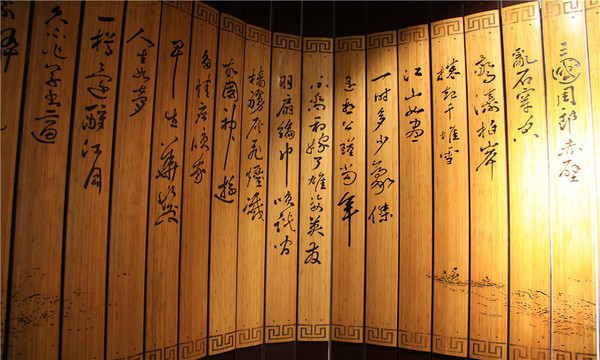 三國周郎赤壁
亂石穿空
驚濤拍岸
捲起千堆雪
江山如畫
一时多少豪傑
遥想公瑾當年
小喬初嫁了雄姿英發
羽扇綸巾談笑間
檣艣灰飛煙滅
故國神遊
多情應笑我
早生華髮
人生如夢
一樽還酹江月